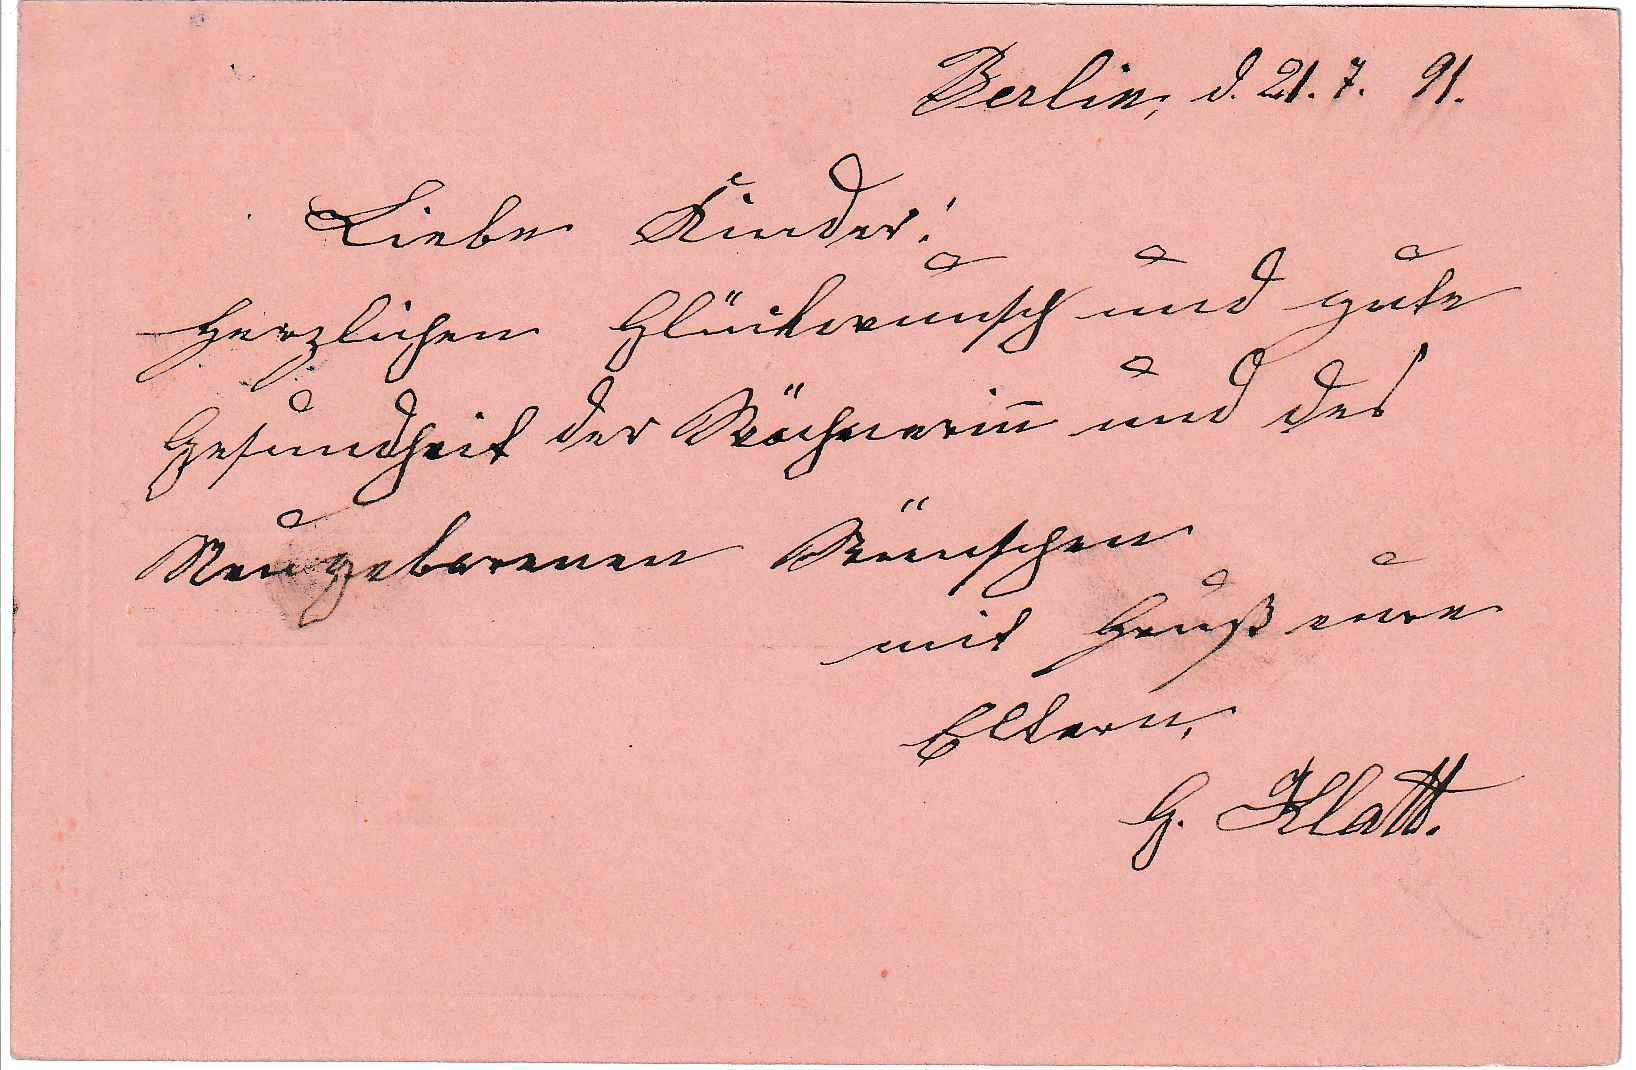 Berlin, d. 21. 7. 91.
Liebe Kinder!
Herzlichen Glückwunsch und gute
Gesundheit der Wöchnerin̅ und des
Neugeborenen Wünschen
mit Gruß eure
Eltern,
G. Klatt.